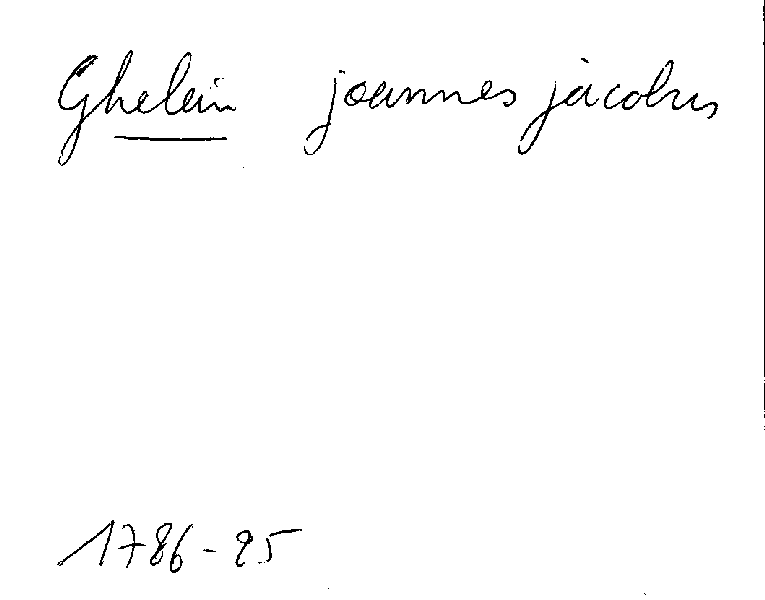 Ghelein joannes jacobus
1786-25